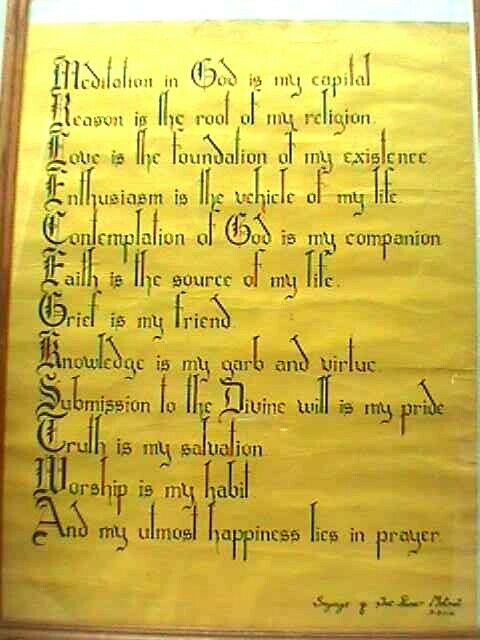 Meditation in God is my capital
Reason is the root of my religion.
Love is the foundation of my existence
Enthusiasm is the vehicle of my life.
Contemplation of God is my companion
Faith is the source of my life.
Grief is my friend.
Knowledge is my garb and virtue.
Submission to the Divine will is my pride
Truth is my salvation
Worship is my habit
And my utmost happiness lies in prayer.
Sayings of